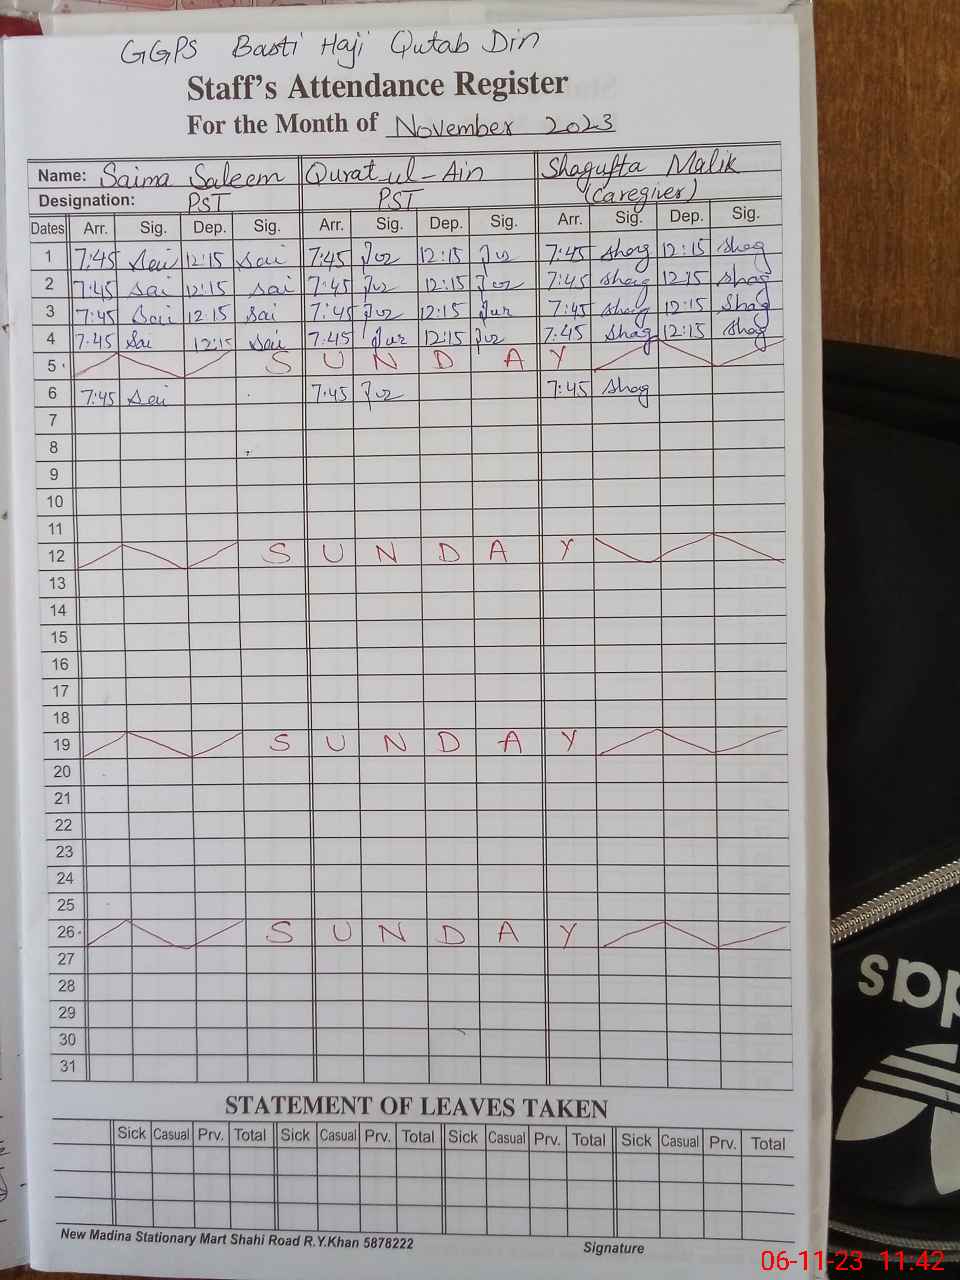 GGPS Basti Haji Qutab Din
Staff's Attendance Register
For the Month of November 2023
Name: Saima Saleem Qurat ul-Ain Shagufta Malik
Designation: PST PST (caregiver)
Dates Arr. Sig. Dep. Sig. Arr. Sig. Dep. Sig. Arr. Sig. Dep. Sig.
1 7:45 Sai 12:15 Sai 7:45 12:15 7:45 Shag 12:15 Shag
2 7:45 Sai 12:15 Sai 7:45 12:15 7:45 Shag 12:15 Shag
3 7:45 Sai 12:15 Sai 7:45 12:15 7:45 Shag 12:15 Shag
4 7:45 Sai 12:15 Sai 7:45 12:15 7:45 Shag 12:15 Shag
5 S U N D A Y
6 7:45 Sai 7:45 7:45 Shag
7
8
9
10
11
12 S U N D A Y
13
14
15
16
17
18
19 S U N D A Y
20
21
22
23
24
25
26 S U N D A Y
27
28
29
30
31
STATEMENT OF LEAVES TAKEN
Sick Casual Prv. Total Sick Casual Prv. Total Sick Casual Prv. Total Sick Casual Prv. Total
New Madina Stationary Mart Shahi Road R.Y.Khan 5878222
Signature
06-11-23 11:42